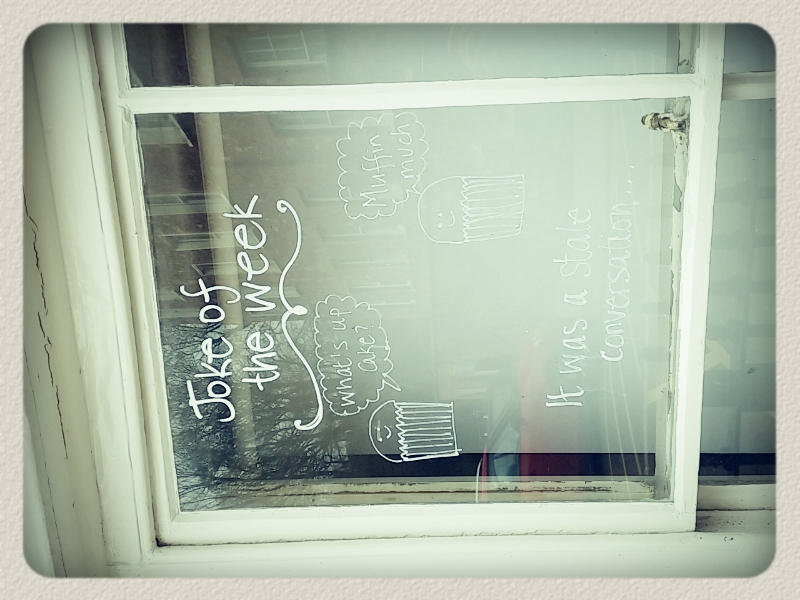 Joke of
the week
What's up
cake?
Muffin
much
It was a stale
conversation....